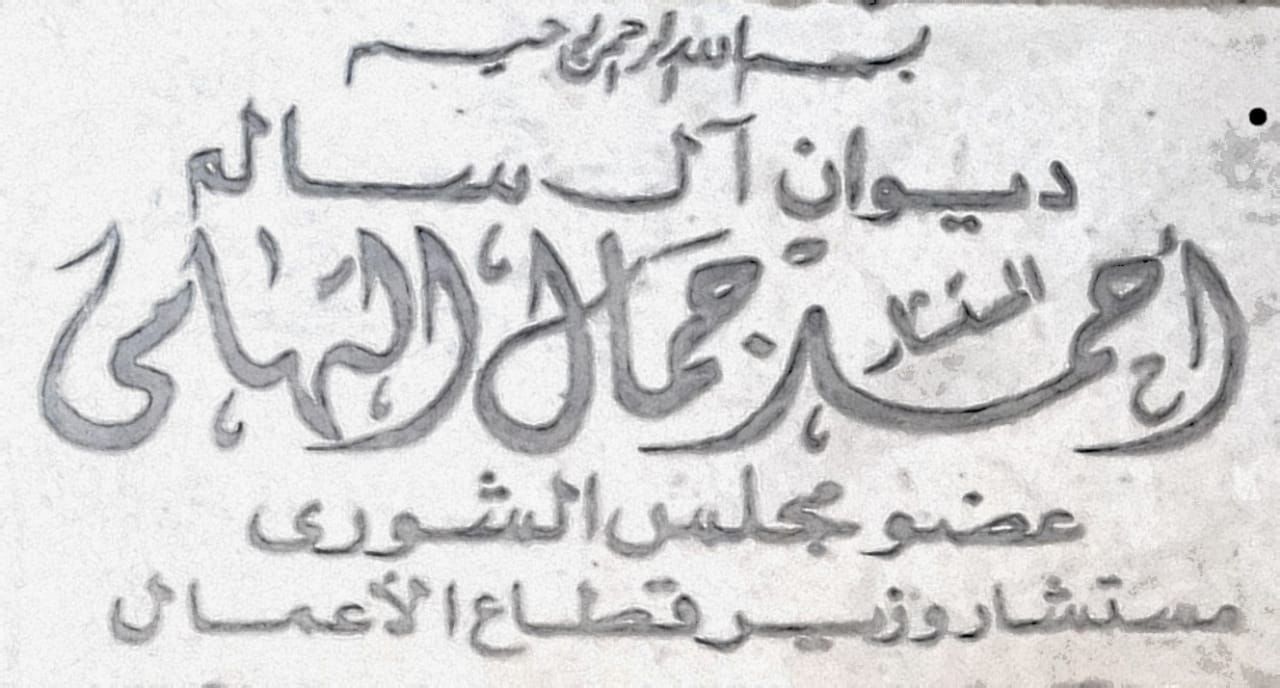 بسم الله الرحمن الرحيم
ديوان آل سالم
المستشار
أحمد جمال التهامى
عضو مجلس الشورى
مستشار وزير قطاع الأعمال